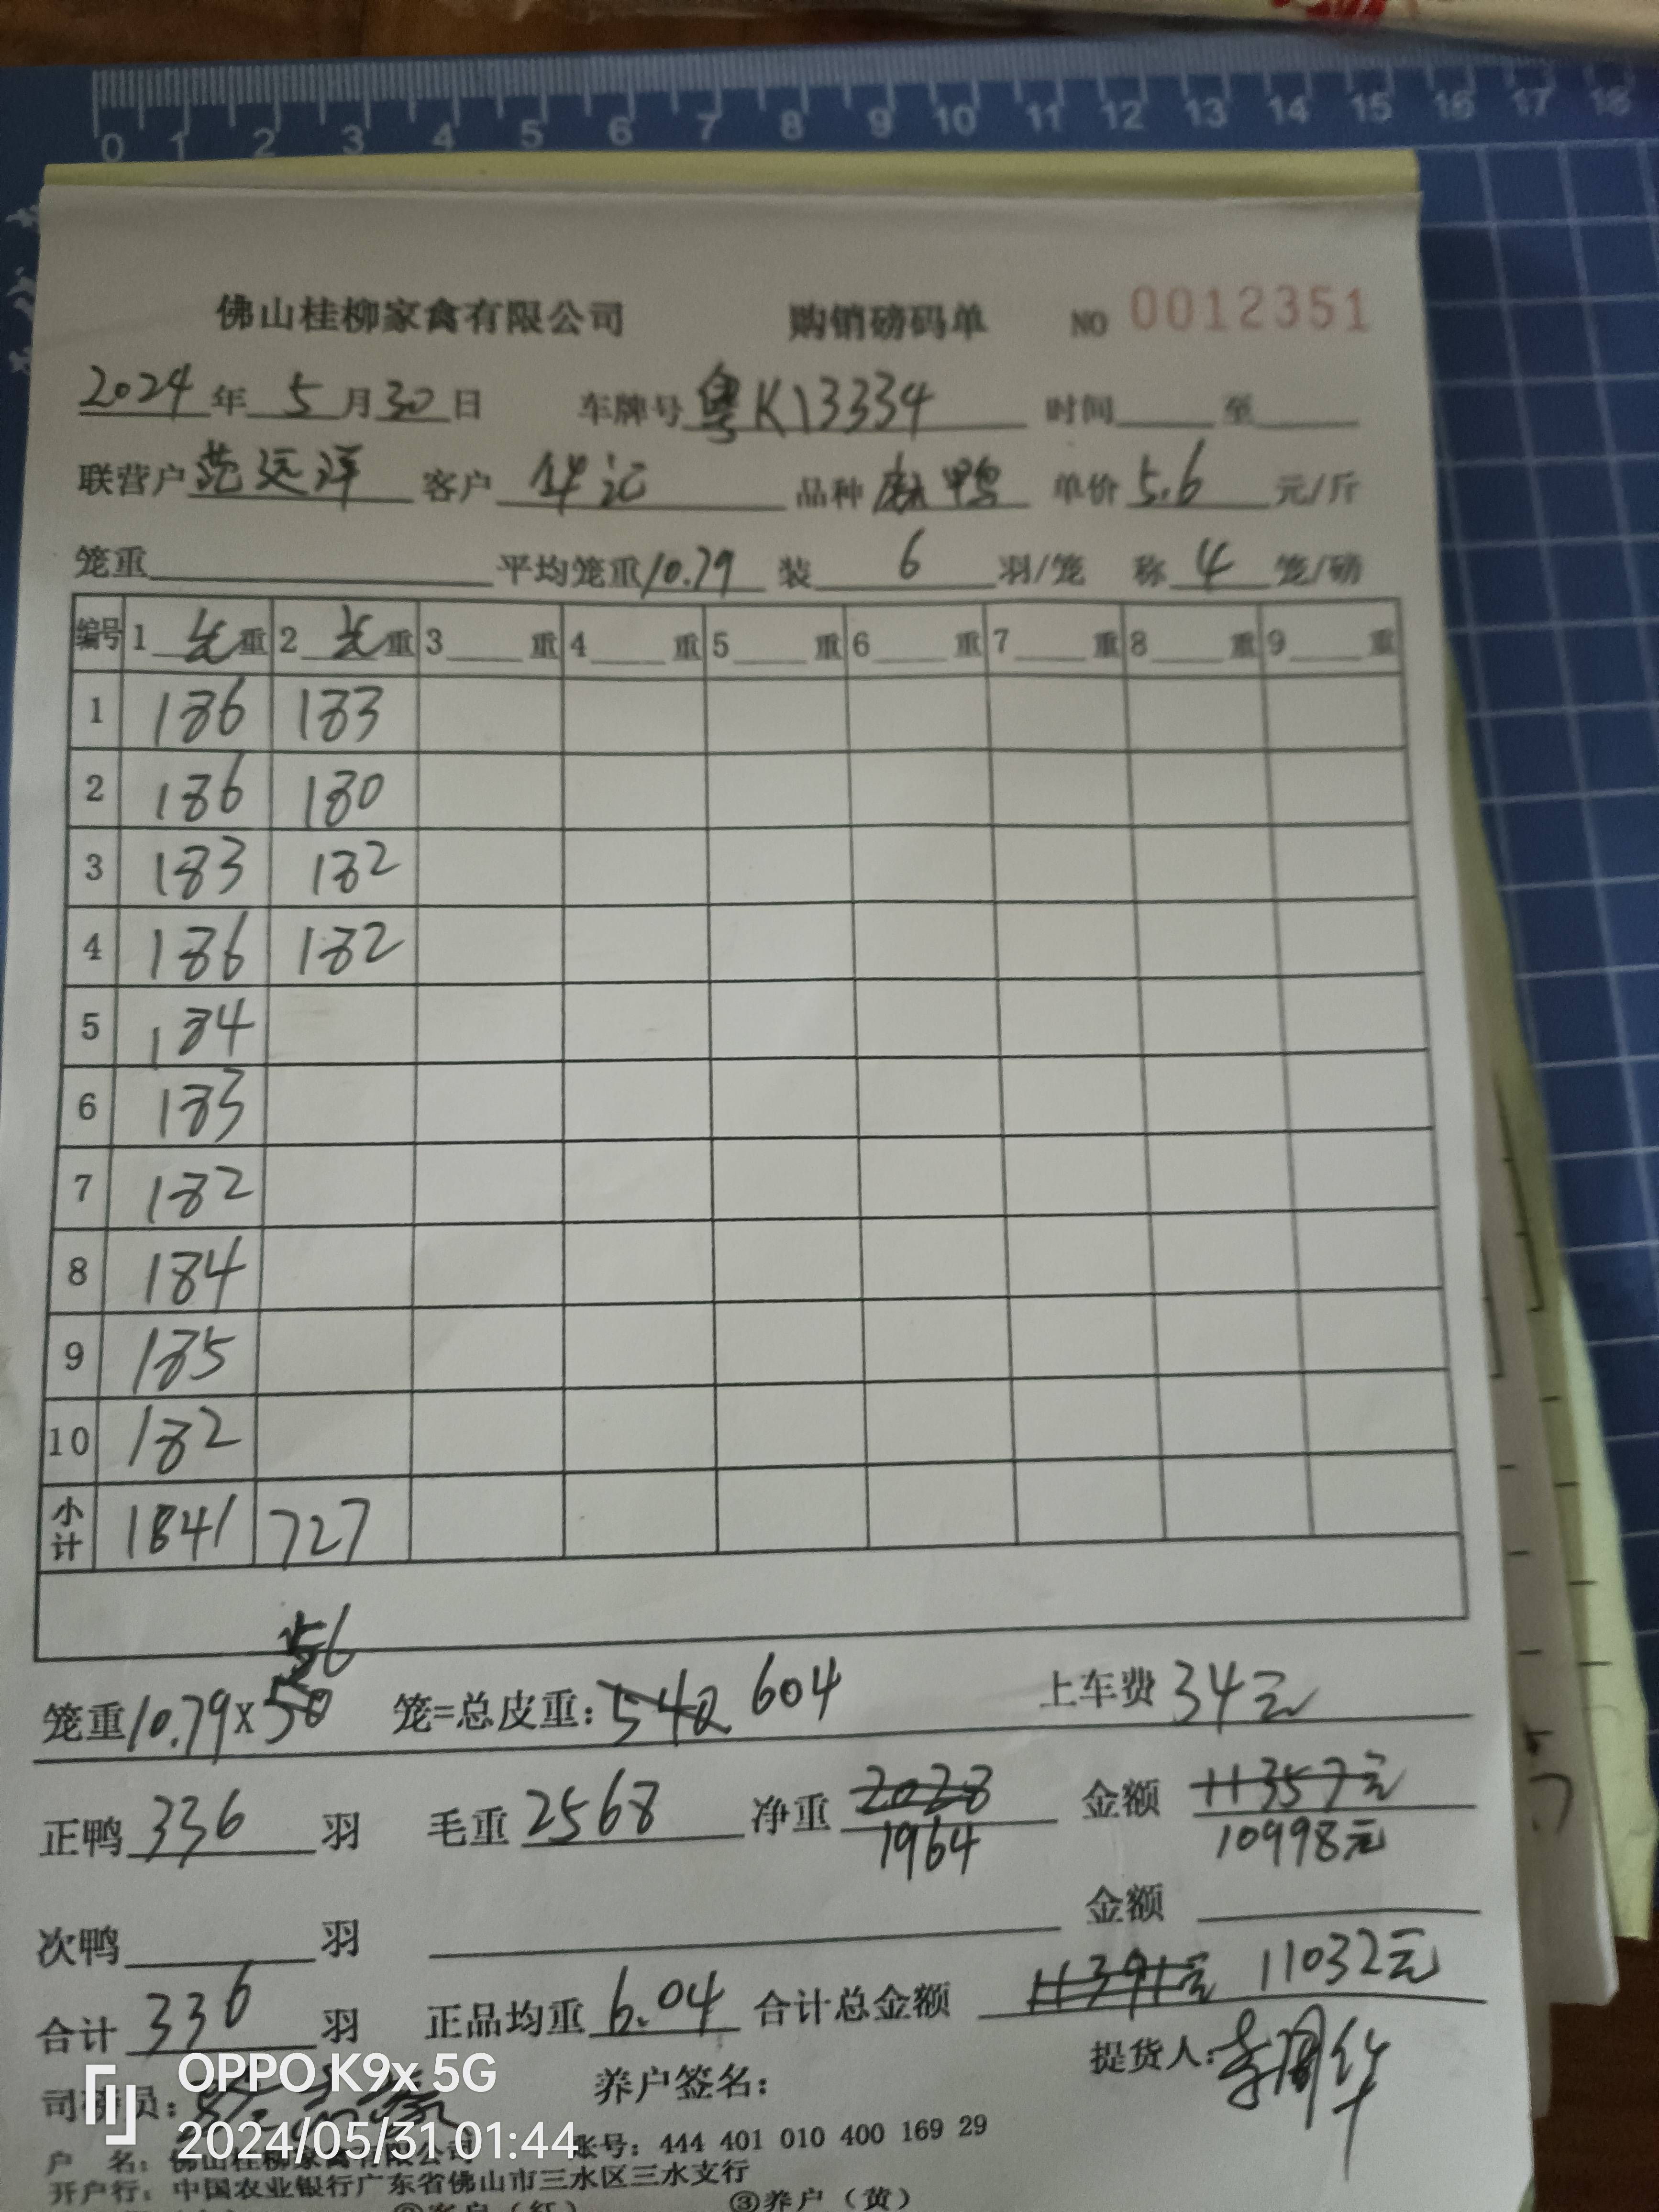 0 1 2 3 4 5 6 7 8 9 10 11 12 13 14 15 16 17 18
佛山桂柳家禽有限公司 购销磅码单 NO 0012351
2024年5月30日 车牌号粤K13334 时间 至
联营户范远洋 客户华记 品种麻鸭 单价5.6元/斤
笼重 平均笼重10.79 装6羽/笼 称4笼/磅
编号 1毛重 2毛重 3重 4重 5重 6重 7重 8重 9重
1 186 183
2 186 180
3 183 182
4 186 182
5 184
6 183
7 182
8 184
9 185
10 182
小计 1841 727
56
笼重10.79X50 笼=总皮重:542 604 上车费34元
正鸭336羽 毛重2568 净重2028 金额11357元
1964 10998元
次鸭 羽 金额
合计336羽 正品均重6.04 合计总金额11391元 11032元
司磅员: 养户签名: 提货人:
OPPO K9x 5G
2024/05/31 01:44
户 名:佛山桂柳家禽有限公司 账号:444 401 010 400 169 29
开户行:中国农业银行广东省佛山市三水区三水支行
②客户(红) ③养户(黄)